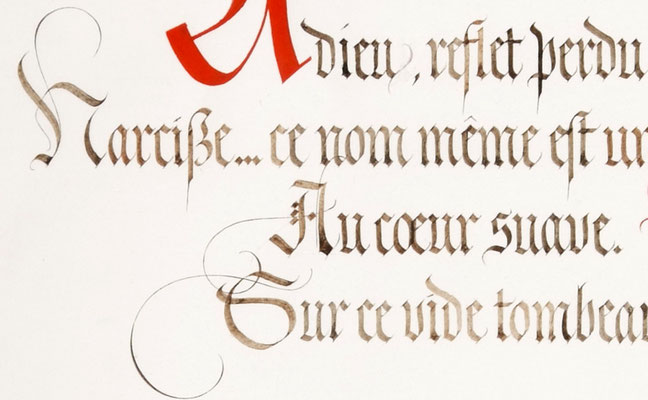 Adieu, reflet perdu
Narciße... ce nom même est un
Au cœur suave.
Sur ce vide tombeau